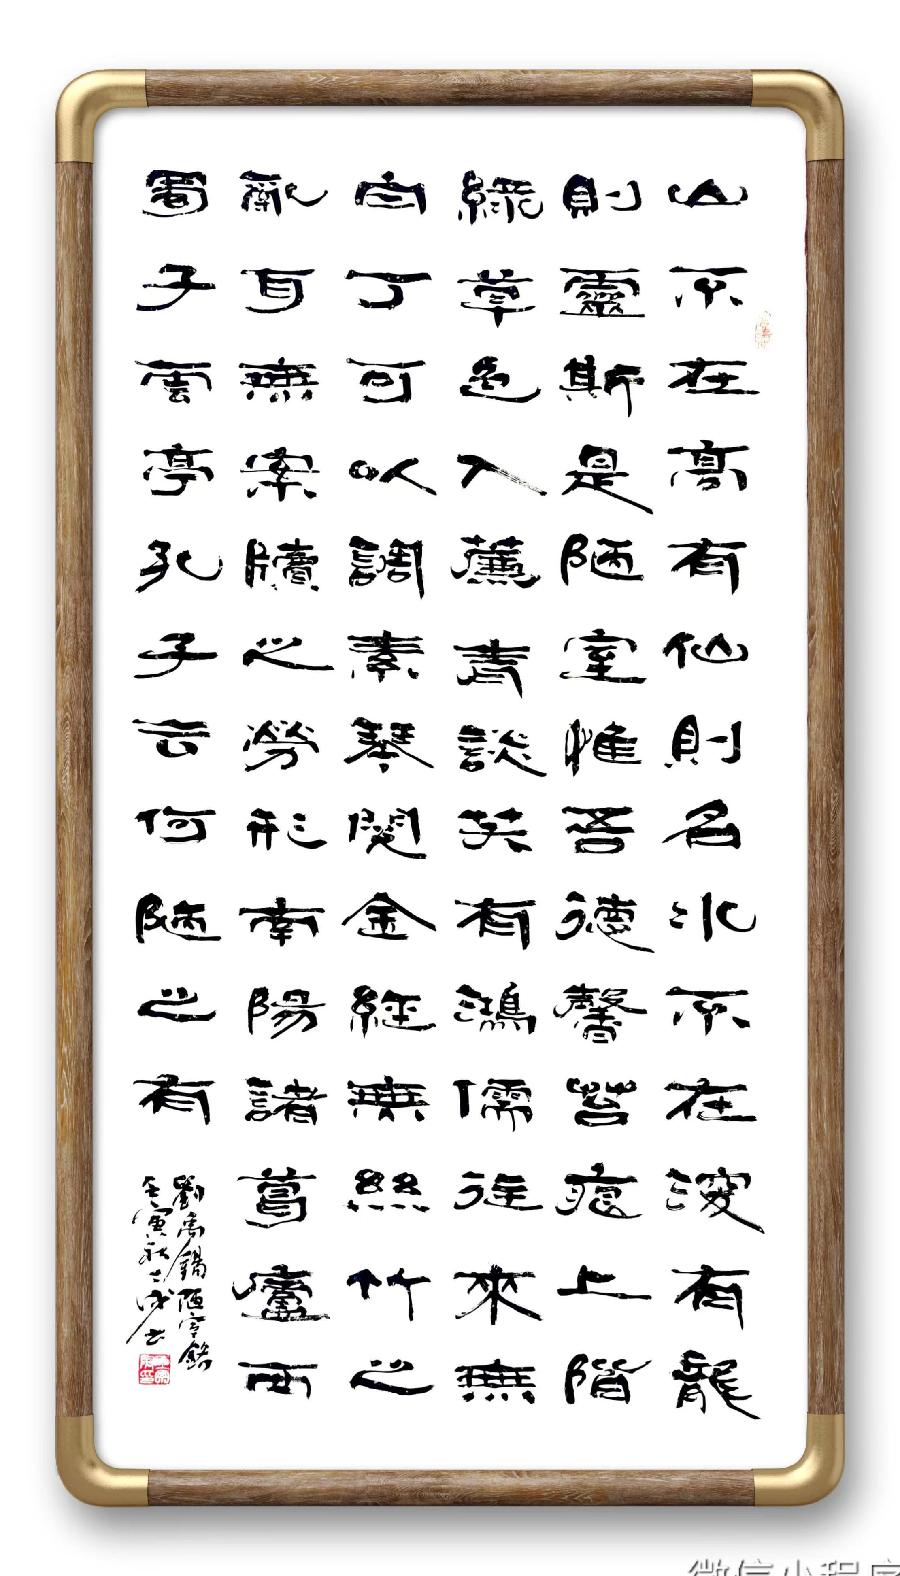 山不在高有仙則名水不在深有龍
則靈斯是陋室惟吾德馨苔痕上階
綠草色入簾青談笑有鴻儒往來無
白丁可以調素琴閱金經無絲竹之
亂耳無案牘之勞形南陽諸葛廬西
蜀子雲亭孔子云何陋之有
劉禹錫陋室銘
壬寅秋
微信小程序